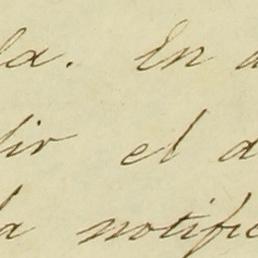 la. En a
dir el a
la notific